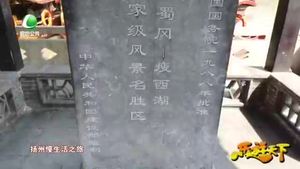 国务院一九八八年批准
蜀冈—瘦西湖
家级风景名胜区
中华人民共和国建设部
扬州慢生活之旅
乐游天下